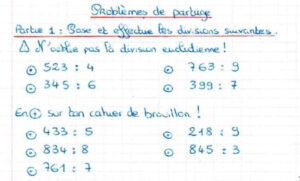 Problèmes de partage
Partie 1 : Pose et effectue les divisions suivantes.
⚠ N'oublie pas la division euclidienne !
⊙ 523 : 4 ⊙ 763 : 9
⊙ 345 : 6 ⊙ 399 : 7
En ⊕ sur ton cahier de brouillon !
⊙ 433 : 5 ⊙ 218 : 9
⊙ 834 : 8 ⊙ 845 : 3
⊙ 761 : 7